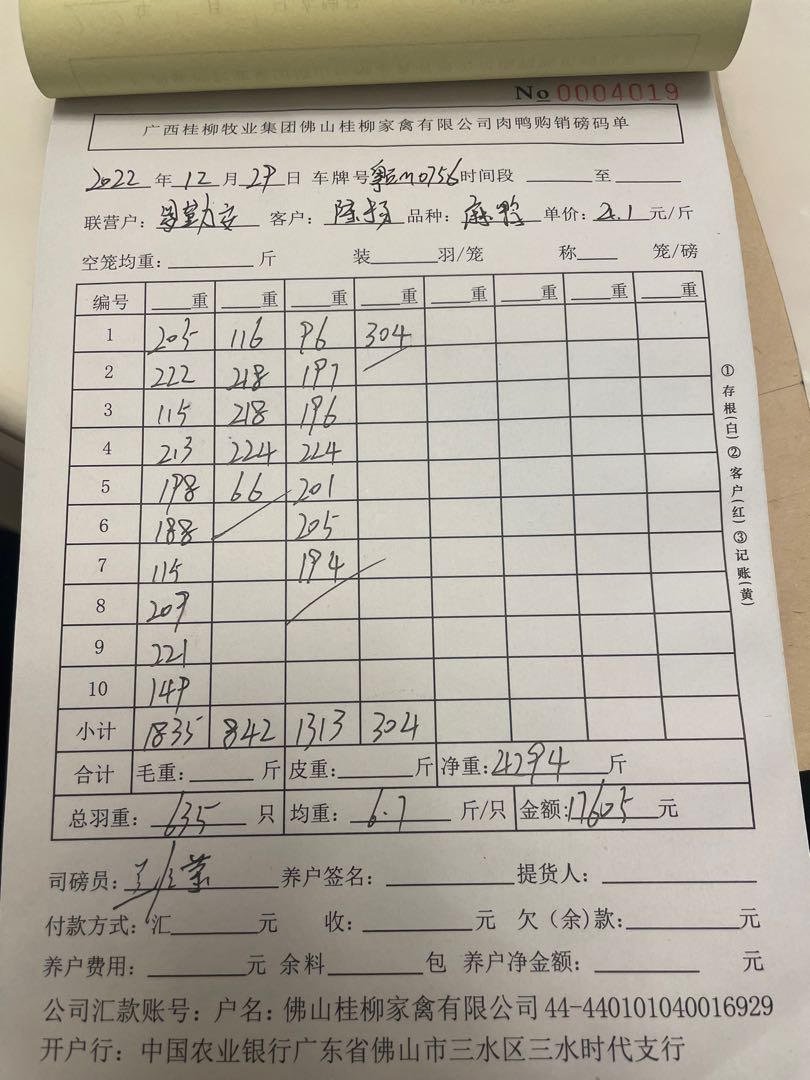 No 0004019
广西桂柳牧业集团佛山桂柳家禽有限公司肉鸭购销磅码单
2022 年 12 月 29 日 车牌号 M0756 时间段 至
联营户: 勤 客户: 陈 品种: 麻鸭 单价: 4.1 元/斤
空笼均重: 斤 装 羽/笼 称 笼/磅
编号 重 重 重 重 重 重 重 重
1 205 116 96 304
2 222 218 197
3 115 218 196
4 213 224 224
5 198 66 201
6 188 205
7 115 194
8 209
9 221
10 149
小计 1835 842 1313 304
合计 毛重: 斤 皮重: 斤 净重: 4294 斤
总羽重: 635 只 均重: 6.7 斤/只 金额: 17605 元
司磅员: 养户签名: 提货人:
付款方式: 汇 元 收: 元 欠(余)款: 元
养户费用: 元 余料 包 养户净金额: 元
公司汇款账号: 户名: 佛山桂柳家禽有限公司 44-440101040016929
开户行: 中国农业银行广东省佛山市三水区三水时代支行
①存根(白)②客户(红)③记账(黄)